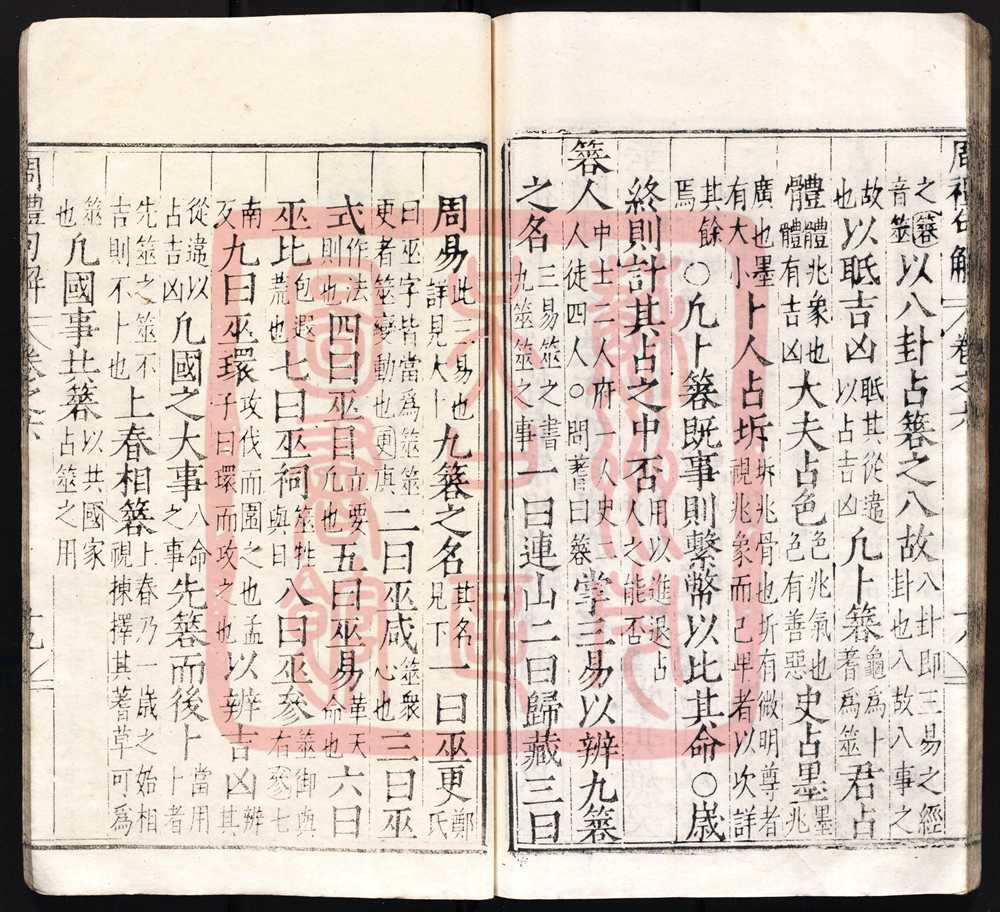 周禮句解 卷之六 十八
之簭音筮以八卦占簭之八故八卦即三易之經卦也八故八事之
故也以眡吉凶眡其從違以占吉凶凡卜簭龜爲卜蓍爲筮君占
體體兆象也體有吉凶大夫占色色兆氣也色有善惡史占墨墨兆
廣也墨有大小卜人占坼坼兆骨也坼有微明尊者視兆象而已卑者以次詳
其餘焉○凡卜簭既事則繫幣以比其命○歲
終則計其占之中否用以進退占人之能否
簭人中士二人府一人史二人徒四人○問蓍曰簭掌三易以辨九簭
之名三易筮之書九筮筮之事一曰連山二曰歸藏三曰
周易此三易也詳見大卜九簭之名其名見下一曰巫更鄭氏
曰巫字皆當爲筮筮更者筮變動也更庚二曰巫咸筮衆心也三曰巫
式作法則也四曰巫目立要凡也五曰巫易革天命也六曰
巫比包遐荒也七曰巫祠筮牲與日八曰巫參筮御與右參七
南反九曰巫環攻伐而圍之也孟子曰環而攻之也以辨吉凶辨其
從違以占吉凶凡國之大事八命之事先簭而後卜當用卜者
先筮之筮不吉則不卜也上春相簭上春乃一歲之始相視揀擇其蓍草可爲
筮者也凡國事共簭以共國家占筮之用
周禮句解 卷之六 十九